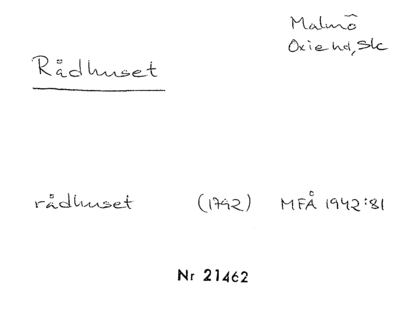 Malmö
Oxie hd, Skc
Rådhuset
rådhuset (1792) MFÅ 1942:81
Nr 21462